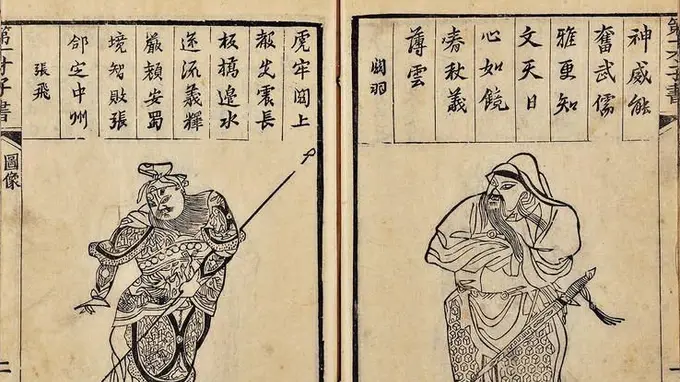 第一才子書
神威能
奮武儒
雅更知
文天日
心如鏡
春秋義
薄雲
關羽
虎牢關上
聲先震長
板橋邊水
逆流義釋
嚴顏安蜀
境智敗張
郃定中州
張飛
第一才子書
圖像